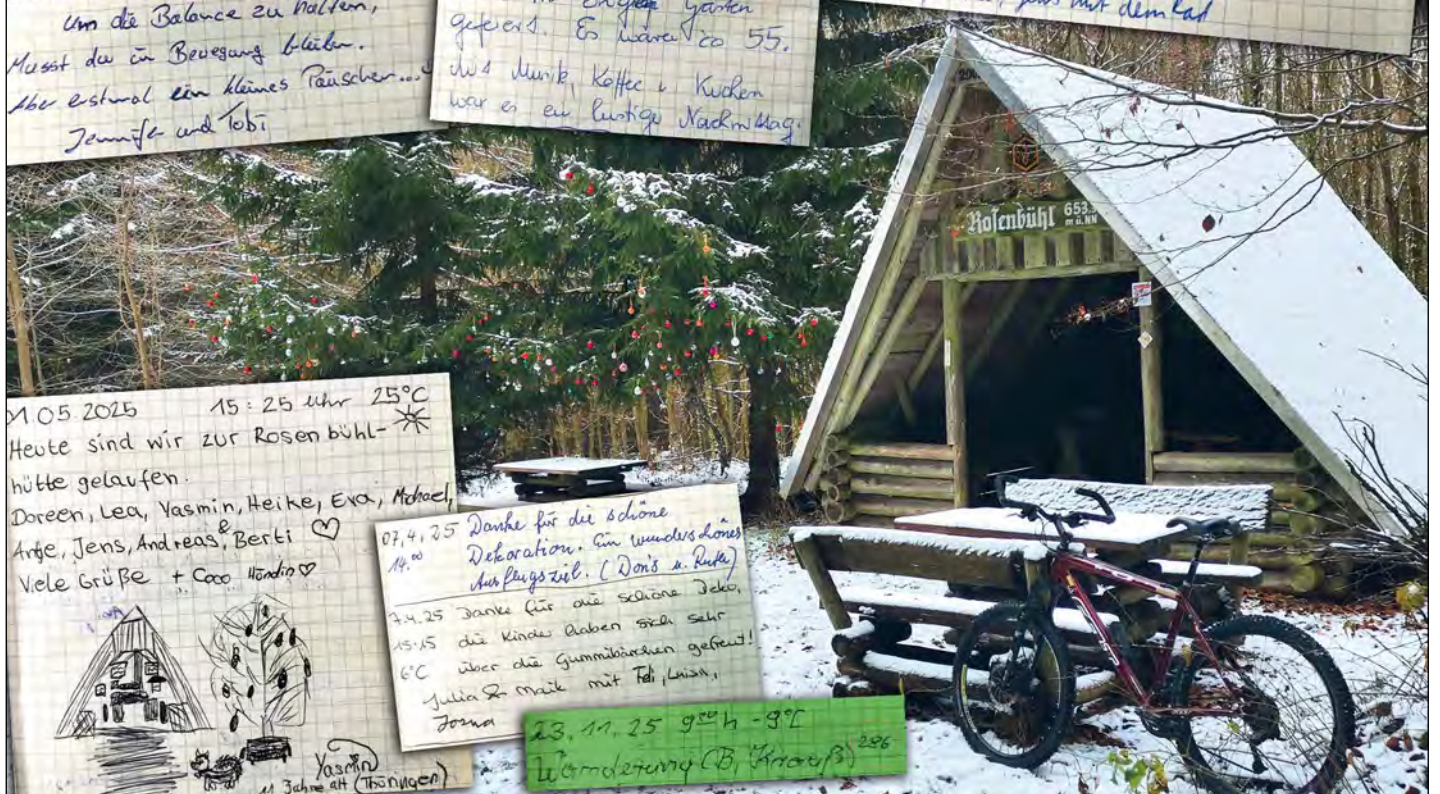 Um die Balance zu halten,
Musst du in Bewegung bleiben.
Aber erstmal ein kleines Päuschen...
Jennifer und Tobi
gefeiert. Es waren ca 55.
Mus Musik, Kaffee u Kuchen
war es ein lustige Nachmittag.
mit dem Rad
200
Rosenbühl 653,
m ü. NN
1.05.2025 15:25 Uhr 25°C
Heute sind wir zur Rosenbühl-
hütte gelaufen.
Doreen, Lea, Yasmin, Heike, Eva, Michael,
Antje, Jens, Andreas, & Berti ♡
Viele Grüße + Coco Hündin ♡
Yasmin
11 Jahre alt (Thüringen)
07.4.25 Danke für die schöne
14.00 Dekoration. Ein wunderschönes
Ausflugsziel. (Doris u.
7.4.25 Danke für die schöne Deko,
15.15 die Kinder haben sich sehr
6°C über die Gummibärchen gefreut!
Julia & Maik mit Feli, Luisa,
23.11.25 9 h -9°C
Wanderung (B. Krauß) 286